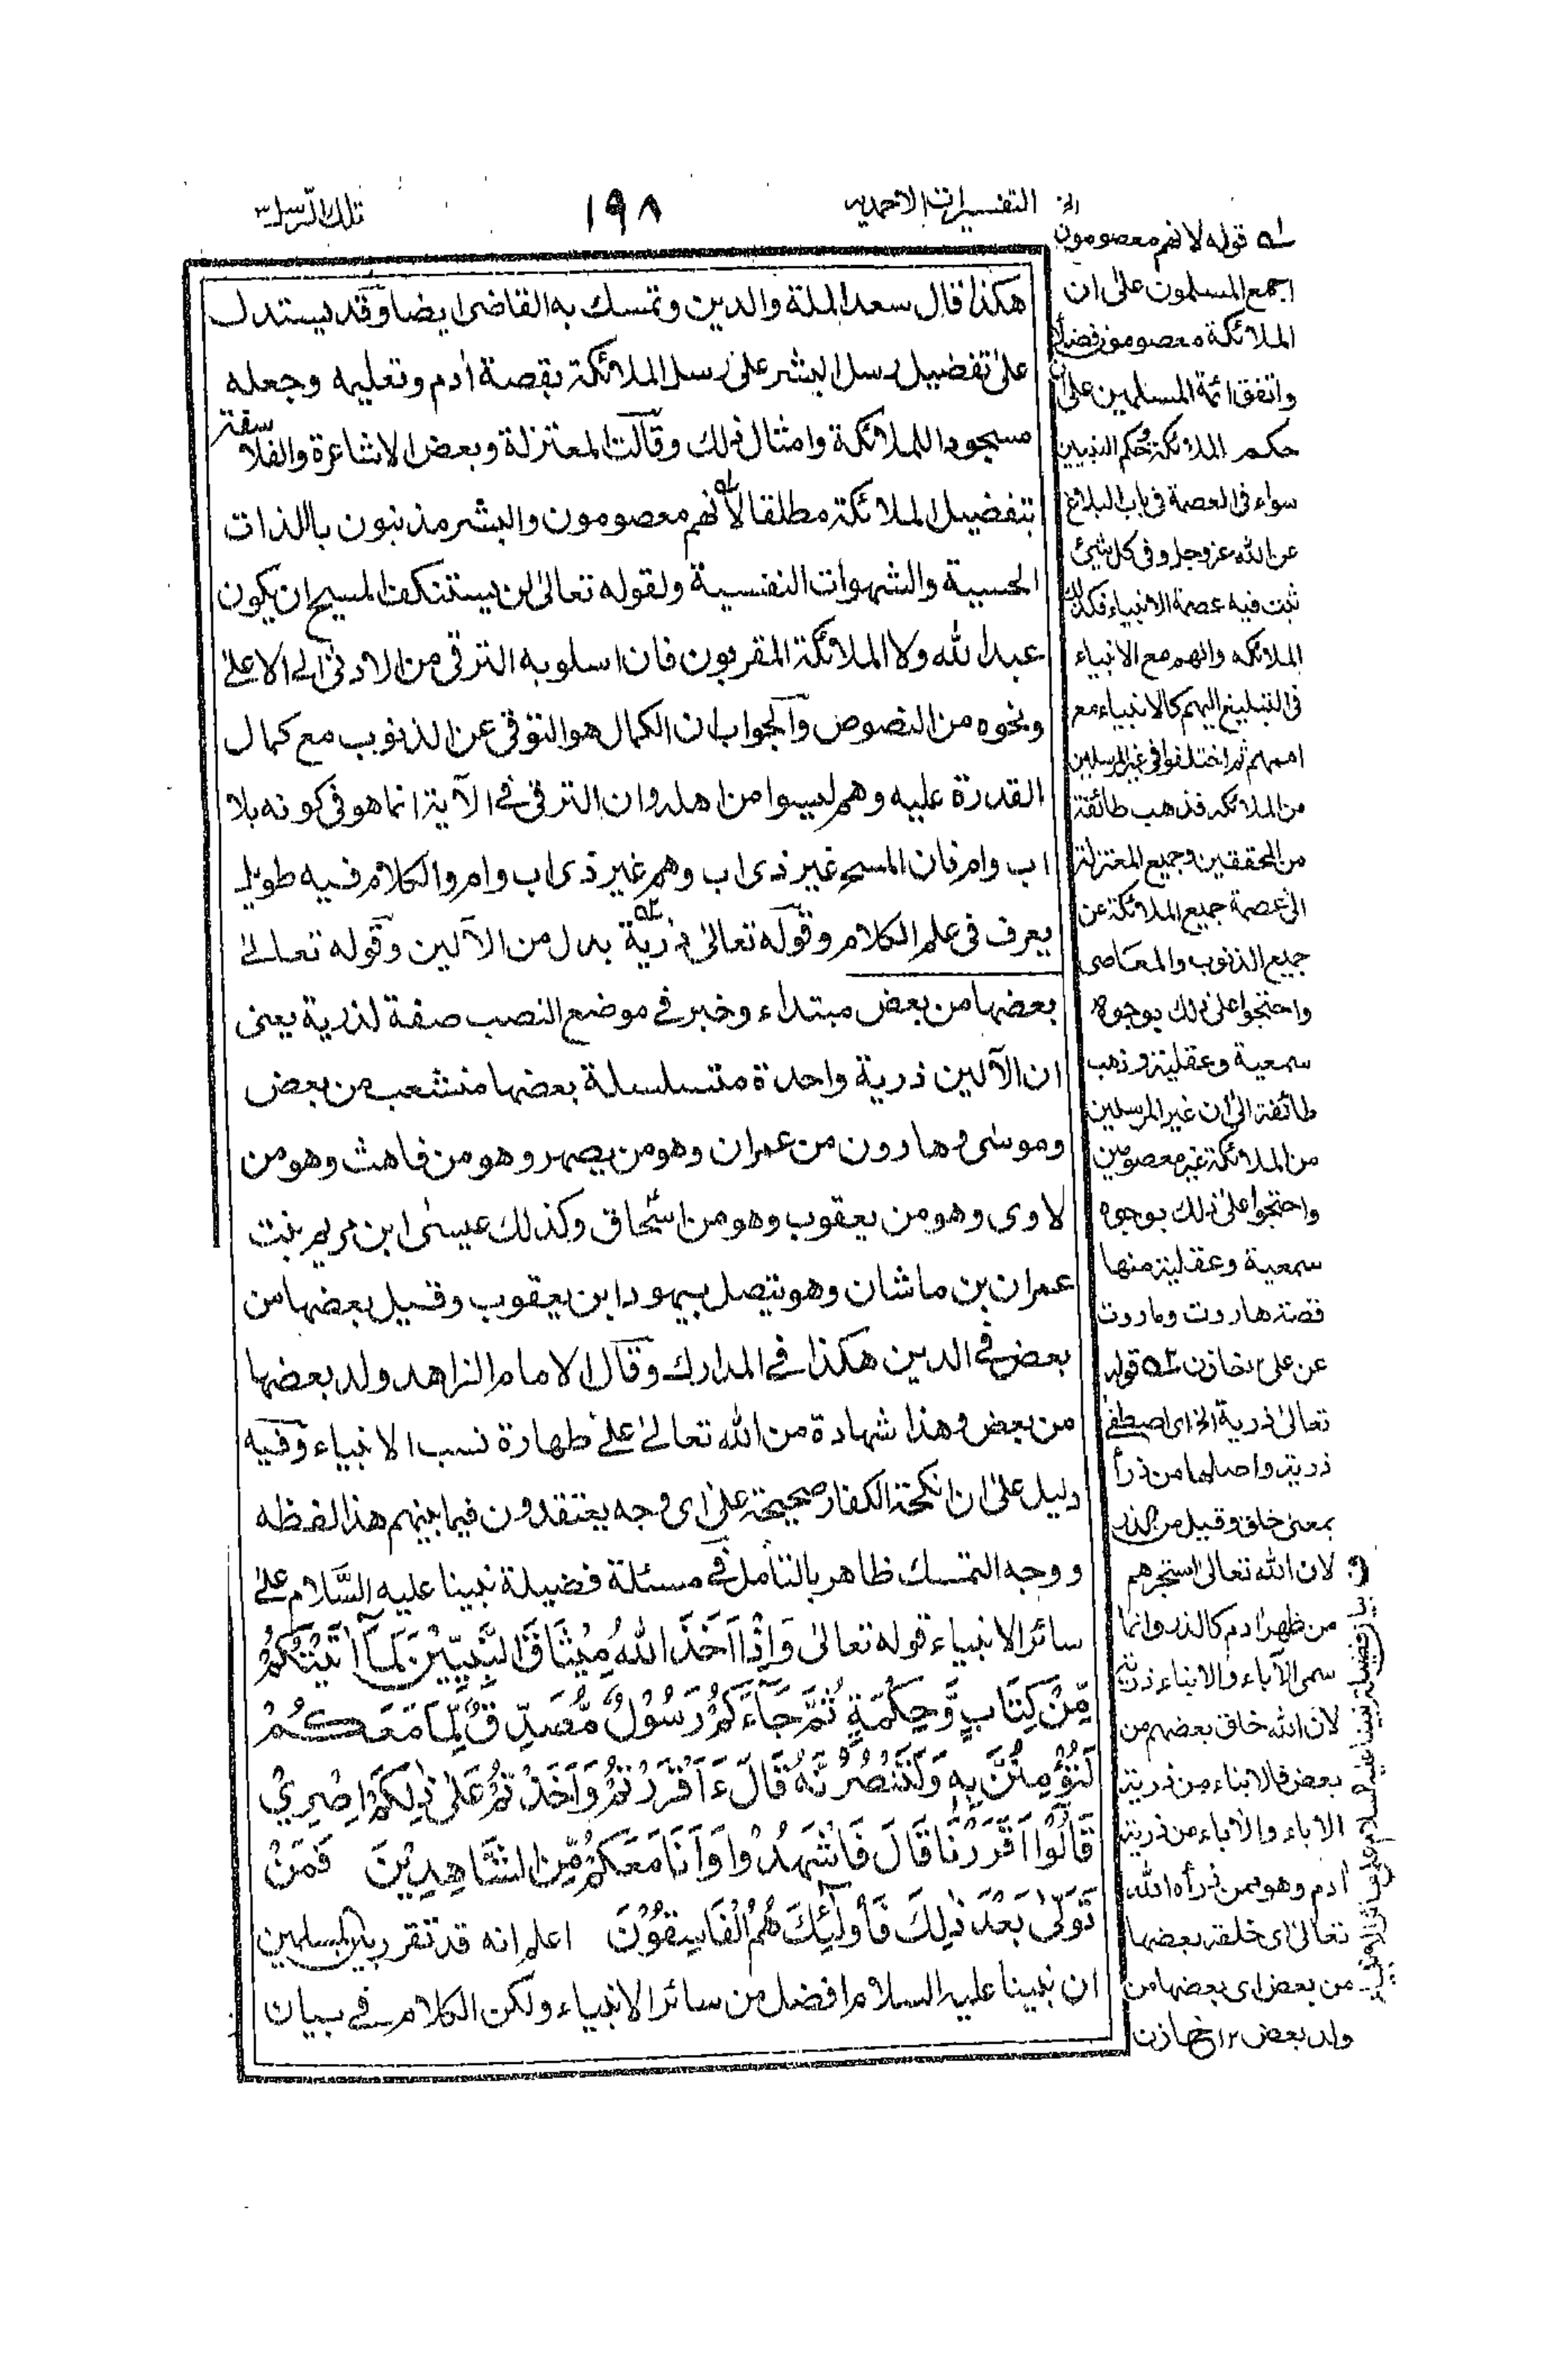 التفسيرات الاحمديه
١٩٨
تلك الرسل٣
هكذا قال سعد الملة والدين وتمسك به القاضى ايضا وقد يستدل
على تفضيل رسل البشر على رسل الملائكة بقصة أدم وتعليمه وجعله
مسجودا للملائكة وامثال ذلك وقالت المعتزلة وبعض الاشاعرة والفلاسفة
بتفضيل الملائكة مطلقا لانهم معصومون والبشر مذنبون باللذات
الحسية والشهوات النفسية ولقوله تعالىٰ لن يستنكف المسيح ان يكون
عبدا لله ولا الملائكة المقربون فان اسلوبه الترقى من الادنىٰ الى الاعلىٰ
ونحوه من النصوص والجواب ان الكمال هو التوقى عن الذنوب مع كمال
القدرة عليه وهم ليسوا من اهله وان الترقى فى الآية انما هو فى كونه بلا
اب وام فان المسيح غير ذى اب وهم غير ذى اب وام والكلام فيه طويل
يعرف فى علم الكلام وقوله تعالىٰ ذرية بدل من الآلين وقوله تعالىٰ
بعضها من بعض مبتداء وخبر فى موضع النصب صفة لذرية يعنى
ان الآلين ذرية واحدة متسلسلة بعضها منشعب من بعض
وموسى وهارون من عمران وهو من يصهر وهو من فاهث وهو من
لاوى وهو من يعقوب وهو من اسحٰاق وكذلك عيسىٰ ابن مريم بنت
عمران بن ماشان وهو يتصل بيهودا بن يعقوب وقيل بعضها من
بعض فى الدين هكذا فى المدارك وقال الامام الزاهد ولد بعضها
من بعض وهذا شهادة من الله تعالىٰ علىٰ طهارة نسب الانبياء وفيه
دليل علىٰ ان انكحة الكفار صحيحة علىٰ اى وجه يعتقدون فيما بينهم هذا لفظه
ووجه التمسك ظاهر بالتأمل فى مسئلة فضيلة نبينا عليه السَّلام علىٰ
سائر الانبياء قوله تعالىٰ وَاِذْ اَخَذَ اللهُ مِيْثَاقَ النَّبِيِّيْنَ لَمَآ اٰتَيْتُكُمْ
مِّنْ كِتَابٍ وَّحِكْمَةٍ ثُمَّ جَآءَكُمْ رَسُوْلٌ مُّصَدِّقٌ لِّمَا مَعَكُمْ
لَتُؤْمِنُنَّ بِهٖ وَلَتَنْصُرُنَّهٗ قَالَ ءَاَقْرَرْتُمْ وَاَخَذْتُمْ عَلىٰ ذٰلِكُمْ اِصْرِيْ
قَالُوْا اَقْرَرْنَا قَالَ فَاشْهَدُوْا وَاَنَا مَعَكُمْ مِّنَ الشَّاهِدِيْنَ فَمَنْ
تَوَلّىٰ بَعْدَ ذٰلِكَ فَاُولٰٓئِكَ هُمُ الْفَاسِقُوْنَ اعلم انه قد تقرر بين المسلمين
ان نبينا عليه السلام افضل من سائر الانبياء ولكن الكلام فى بيان
له قوله لانهم معصومون الخ
اجمع المسلمون علىٰ ان
الملائكة معصومون فضلاء
واتفق ائمة المسلمين علىٰ ان
حكم الملائكة حكم النبيين
سواء فى العصمة فى باب البلاغ
عن الله عز وجل وفى كل شئ
ثبت فيه عصمة الانبياء فكذلك
الملائكه وانهم مع الانبياء
فى التبليغ اليهم كالانبياء مع
اممهم ثم اختلفوا فى غير المرسلين
من الملائكه فذهب طائفة
من المحققين وجميع المعتزلة
الىٰ عصمة جميع الملائكة عن
جميع الذنوب والمعاصى
واحتجوا علىٰ ذلك بوجوه
سمعية وعقلية وذهب
طائفة الىٰ ان غير المرسلين
من الملائكة غير معصومين
واحتجوا علىٰ ذلك بوجوه
سمعية وعقلية منها
قصة هاروت وماروت
عن على خازن ٢ه قوله
تعالىٰ ذرية الخ اى اصطفىٰ
ذرية واصلها من ذرأ
بمعنى خلق وقيل من الذر
لان الله تعالىٰ استخرجهم
من ظهر أدم كالذر وانما
سمى الآباء والابناء ذرية
لان الله خلق بعضهم من
بعض فالابناء من ذرية
الاباء والاباء من ذرية
أدم وهو ممن ذرأه الله
تعالىٰ اى خلقه بعضها
من بعض اى بعضها من
ولد بعض ١٢ خازن